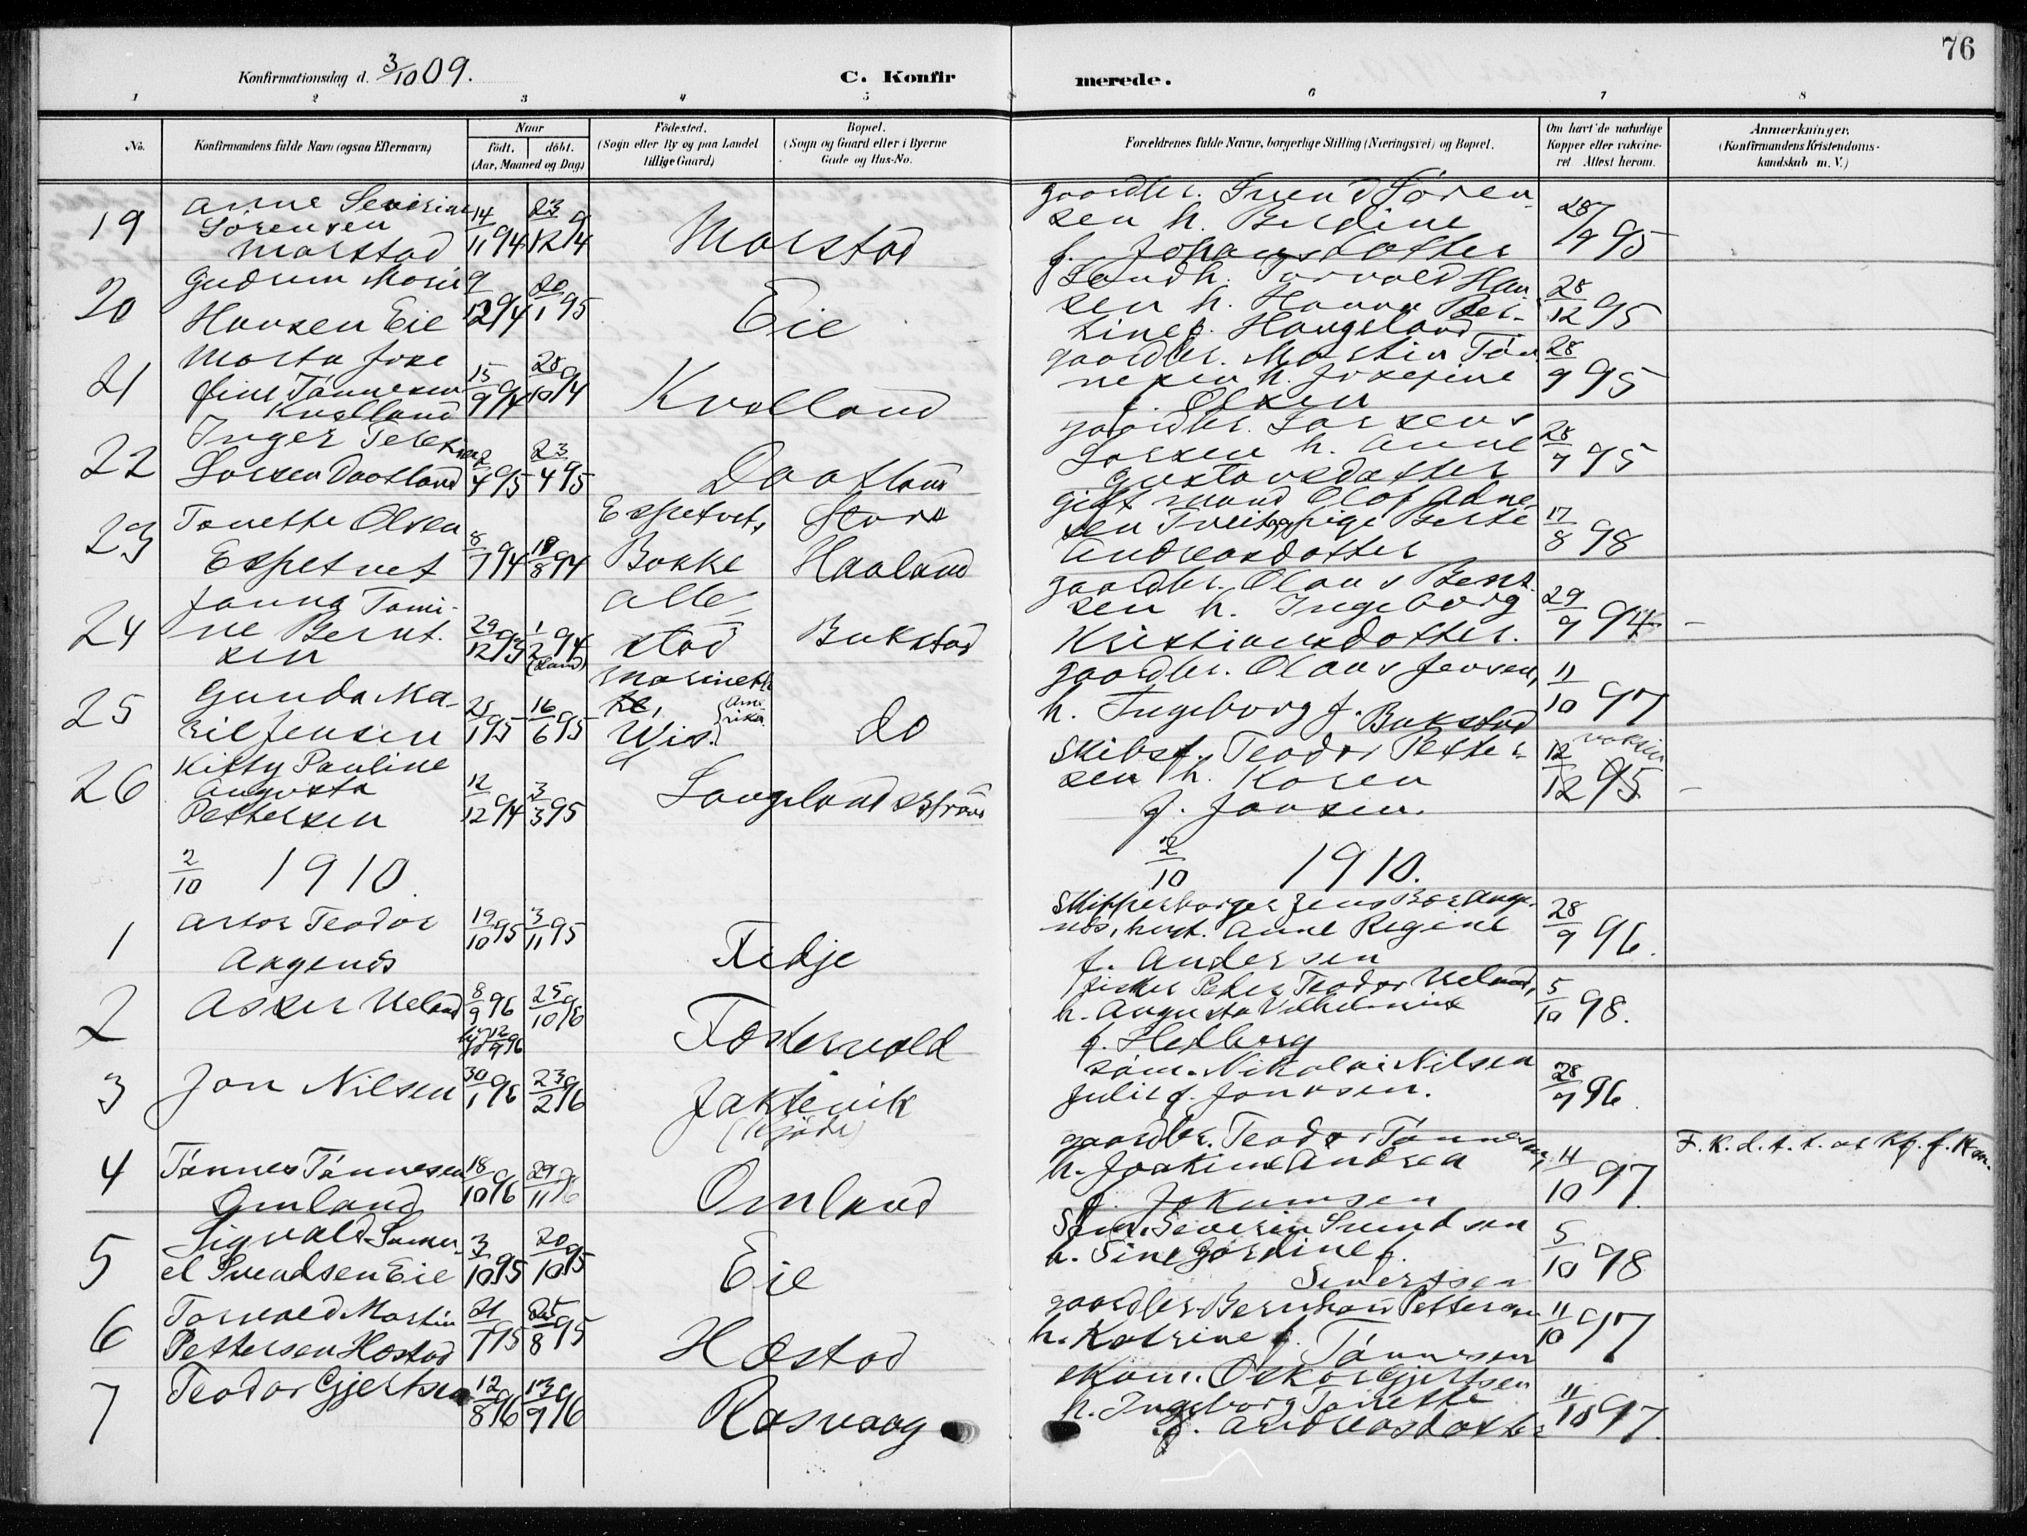 76
Konfirmationsdag d. 3/10 09.
C. Konfirmerede.
1 2 3 4 5 6 7 8
No.
Konfirmandens fulde Navn (ogsaa Efternavn)
Naar
födt. döbt.
(Aar, Maaned og Dag)
Födested.
(Sogn eller By og paa Landet
tillige Gaard)
Bopæl.
(Sogn og Gaard eller i Byerne
Gade og Hus-No.
Forældrenes fulde Navne, borgerlige Stilling (Næringsvei) og Bopæl.
Om havt de naturlige
Kopper eller vakcine-
ret Attest herom.
Anmærkninger.
(Konfirmandens Kristendoms-
kundskab m. V.)
19 Anne Severine
Sörensen
Marstad
14/11 94 23/12 94
Marstad
gaardbr. Svend Sören-
sen h. Berdine
f. Johansdatter
28/9 95
20 Gudrun Marie
Hansen Eie
9/12 94 20/1 95
Eie
Landh. Torvald Han
sen h. Hanna Ber-
tine f. Haugeland
28/12 95
21 Marta Jose
fine Tönnesen
Kvelland
15/9 94 28/10 94
Kvelland
gaardbr. Martin Tön
nesen h. Josefine
f. Olsen
28/9 95
22 Inger
Larsen Daatland
2/4 95 23/4 95
Daatland
gaardbr. Lars
Larsen h. Anne
Gustavsdatter
28/9 95
23 Tonette Olsen
Espetvet
8/7 94 19/8 94
Espetvet,
Bakke
Store
Haaland
gift mand Olaf Adne
sen pige Berte
Andreasdatter
17/8 98
24 Janna Tomi-
ne Bernt.
sen
29/12 93 1/2 94
Alle
stad
Bukstad
gaardbr. Olaus Bernt
sen h. Ingeborg
Kristiansdatter.
29/9 94 –
25 Gunda Ma-
rie Jensen
25/1 95 16/6 95
Marinette
Wis.
(Ame
rika
do
gaardbr. Olaus Jensen,
h. Ingeborg f. Bukstad
11/10 97
26 Kitty Pauline
Augusta
Pettersen
12/12 94 3/3 95
Langelandsstrand
Skibsf. Teodor Petter
sen h. Karen
f. Jansen.
12/12 95 –
2/10 1910.
2/10 1910.
1 Artor Teodor
Aagenæs
19/10 95 3/11 95
Fedje
Skipperborger Jens Aage-
næs, hust. Anne Regine
f. Andersen
28/9 96.
2 Asker Ueland
8/9 96 25/10 96
Fostervold
fisker Peter Teodor Ueland,
h. Augusta Vilhelmine
f. Hedberg
5/10 98.
3 Jon Nilsen
30/1 96 23/2 96
Jaktevik
söm. Nikolai Nilsen
Julie f. Jonassen.
28/9 96.
4 Tönnes Tönnesen
Omland
18/10 96 29/11 96
Omland
gaardbr. Teodor Tönnesen,
h. Joakime Andrea
f. Jokumsen
11/10 97.
F. k. d. t. t.
5 Sigvald Samu-
el Svendsen Eie
3/10 95 20/10 95
Eie
Söm. Severin Svendsen
h. Sine Gordine f.
Sivertsen
5/10 98
6 Torvald Martin
Pettersen Hæstad
21/7 95 25/8 95
Hæstad
gaardbr. Bernhard Pettersen
h. Katrine f. Tönnesen
11/10 97
7 Teodor Gjertsen
12/8 96 13/9 96
Rasvaag
Oskar Gjertsen
h. Ingeborg Tonette
f. Andreasdatter
11/10 97.